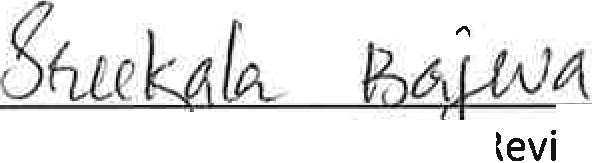 Sreekala Bajwa
Revi